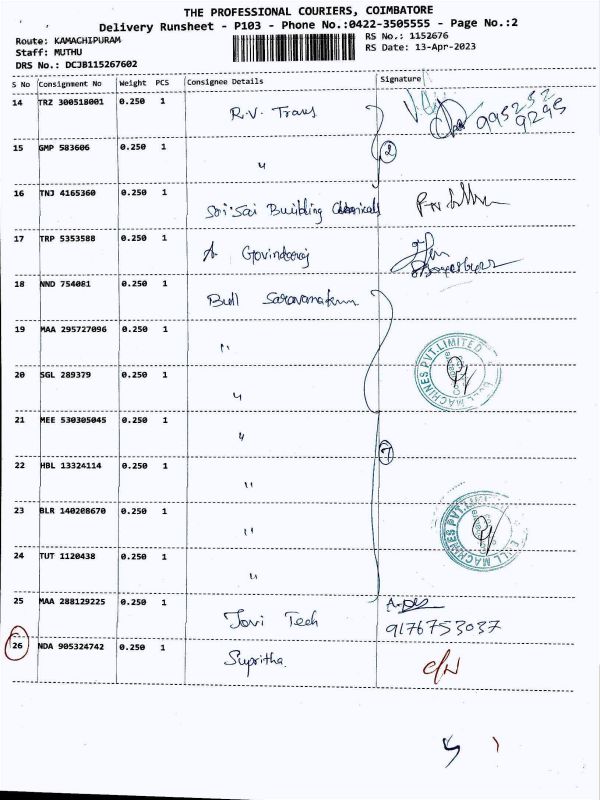 THE PROFESSIONAL COURIERS, COIMBATORE
Delivery Runsheet - P103 - Phone No.:0422-3505555 - Page No.:2
Route: KAMACHIPURAM
Staff: MUTHU
DRS No.: DCJB115267602
RS No.: 1152676
RS Date: 13-Apr-2023
S No Consignment No Weight PCS Consignee Details Signature
14 TRZ 300518001 0.250 1 R.V. Trans 995252 9295
15 GMP 583606 0.250 1 〃 2
16 TNJ 4165360 0.250 1 Sri Sai Building Chemicals
17 TRP 5353588 0.250 1 A Govindaraj
18 NND 754081 0.250 1 Bull
19 MAA 295727096 0.250 1 〃
20 SGL 289379 0.250 1 〃 BULL MACHINES PVT.LIMITED
21 MEE 530305045 0.250 1 〃
22 HBL 13324114 0.250 1 〃 7
23 BLR 140208670 0.250 1 〃
24 TUT 1120438 0.250 1 〃 BULL MACHINES PVT.LIMITED
25 MAA 288129225 0.250 1 Jovi Tech 9176753037
26 NDA 905324742 0.250 1 Supritha. C/N